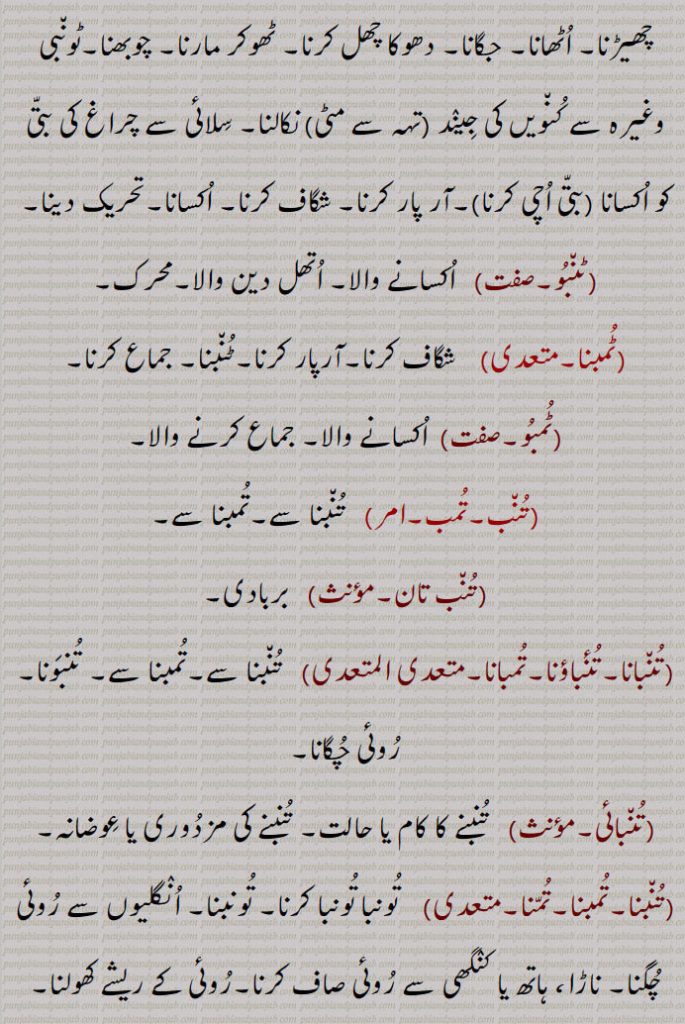 چھیڑنا۔ اُٹھانا۔ جگانا۔ دھوکا چھل کرنا۔ ٹھوکر مارنا۔ چوبھنا۔ٹونّبی
وغیرہ سے کُنّویں کی جِینْد (تہہ سے مٹی) نکالنا۔ سِلائی سے چراغ کی بتّی
کو اُکسانا (بتّی اُچی کرنا)۔آر پار کرنا۔ شگاف کرنا۔ اُکسانا۔تحریک دینا۔
(ٹنّبُو۔صفت) اُکسانے والا۔ اُتھل دین والا۔محرک۔
(ٹُمبنا۔متعدی) شگاف کرنا۔آرپار کرنا۔ٹُنّبنا۔ جماع کرنا۔
(ٹُمبُو۔صفت) اُکسانے والا۔ جماع کرنے والا۔
(تُنّب۔تُمب۔امر) تُنّبنا سے۔تُمبنا سے۔
(تُنّب تان۔مؤنث) بربادی۔
(تُنّبانا۔تُنّباؤنا۔تُمبانا۔متعدی المتعدی) تُنّبنا سے۔تُمبنا سے۔ تُنبوَنا۔
رُوئی چُگانا۔
(تُنّبائی۔مؤنث) تُنبنے کا کام یا حالت۔ تُنبنے کی مزدُوری یا عِوضانہ۔
(تُنّبنا۔تُمبنا۔تُمّنا۔متعدی) تُونبا تُونبا کرنا۔ تُونبنا۔ اُنْگلیوں سے رُوئی
چُگنا۔ ناڑا، ہاتھ یا کنْگھی سے رُوئی صاف کرنا۔رُوئی کے ریشے کھولنا۔